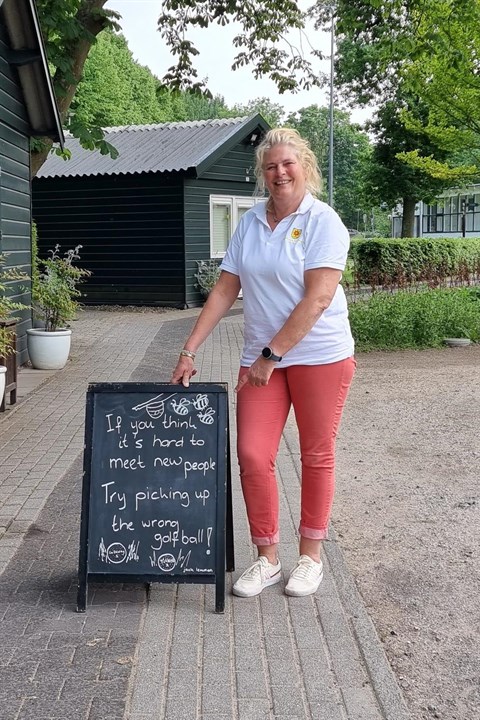 If you think
it's hard to
meet new people
Try picking up
the wrong
golf ball!